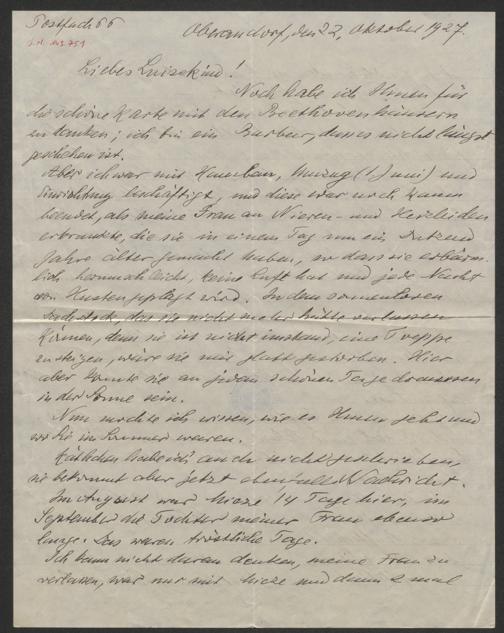 Postfach 66
Oberandorf, den 22. Oktober 1927.
I.N. 203.751
Liebes Luisekind!
Noch habe ich Ihnen für
die schöne Karte mit den Beethovenhäusern
zu danken; ich bin ein Barbar, dass es nicht längst
geschehen ist.
Aber ich war mit Hausbau, Umzug (1 Juni) und
Einrichtung beschäftigt, und diese war noch kaum
beendet, als meine Frau an Nieren- und Herzleiden
erkrankte, die sie in einem Tag um ein Dutzend
Jahre älter gemacht haben, so dass sie erbärm-
lich herumschleicht, keine Luft hat und jede Nacht
von Husten geplagt wird. In dem sonnenlosen
das sie nicht mehr hätte verlassen
können, denn sie ist nicht imstand, eine Treppe
zu steigen, wäre sie mir glatt gestorben. Hier
aber konnte sie an jedem schönen Tage draussen
in der Sonne sein.
Nun möchte ich wissen, wie es Ihnen geht und
wo Sie im Sommer waren.
Käthchen habe ich auch nicht geschrieben,
sie bekommt aber jetzt ebenfalls Nachricht.
Im August war 14 Tage hier, im
September die Tochter meiner Frau ebenso
lange. Das waren tröstliche Tage.
Ich kann nicht daran denken, meine Frau zu
verlassen, war nur mit und dann 2 mal